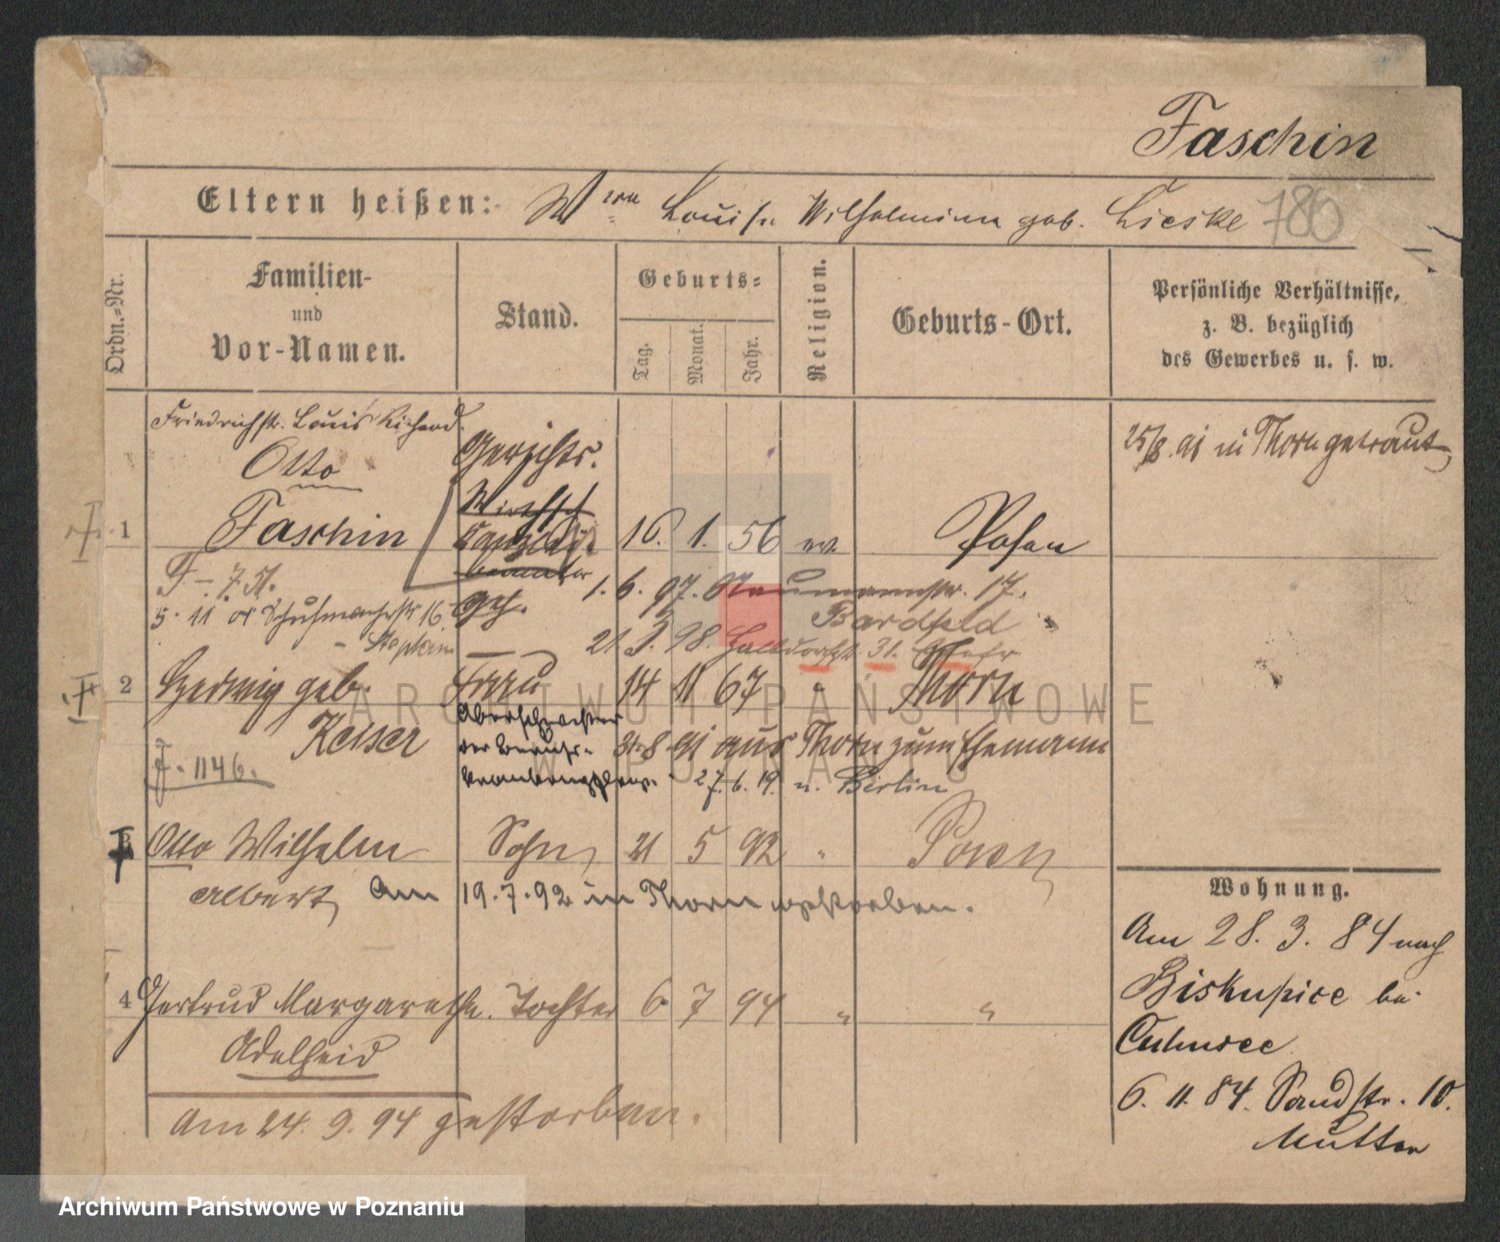 Faschin
Eltern heißen: Wwe Louise Wilhelmine geb. Lieske 780
Ordn.-Nr.
Familien- und Vor-Namen.
Stand.
Geburts-
Tag. Monat. Jahr.
Religion.
Geburts-Ort.
Persönliche Verhältnisse,
z. B. bezüglich
des Gewerbes u. s. w.
Friedrichstr. Louis Richard
Otto
1 Faschin
Gerichts.
Kanzlei
16. 1. 56 ev Posen
25/8. 91 in Thorn getraut
F – 7. 51.
1. 6. 97. Naumannstr. 17.
5. 11 Schuhmacherstr 16
Bardfeld
21 3. 98. Halbdorfstr. 31.
2 Hedwig geb. Frau 14 11 67 " Thorn
Keiser
F. 1146.
Oberschwester
der
31. 8. 91 aus Thorn zum Ehemann
27. 6. 19. n. Berlin
3 Otto Wilhelm Sohn 21 5 92 " Posen
Albert, Am 19. 7. 92 in Thorn gestorben.
4 Gertrud Margarethe Tochter 6 7 94 " "
Adelheid
Am 24. 9. 94 gestorben.
Wohnung.
Am 28. 3. 84 nach
Biskupice bei
Culmsee
6. 11. 84. Sandstr. 10.
Mutter
ARCHIWUM PAŃSTWOWE
W POZNANIU
Archiwum Państwowe w Poznaniu